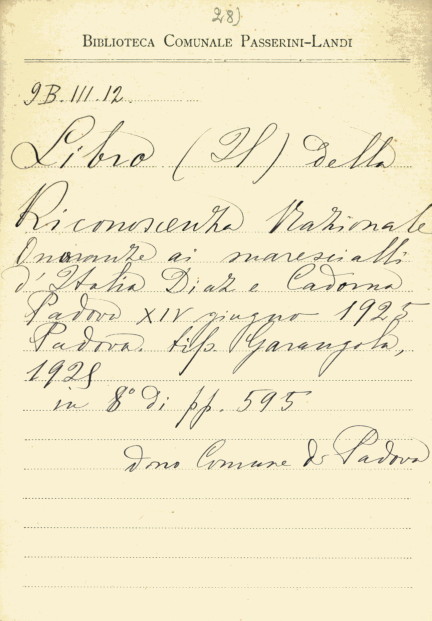 28)
BIBLIOTECA COMUNALE PASSERINI-LANDI
9B.III.12.
Libro (Il) della
Riconoscenza Nazionale
Onoranze ai marescialli
d'Italia Diaz e Cadorna
Padova XIV giugno 1925
Padova. tip. Garangola,
1925
in 8° di pp. 595
dono Comune di Padova